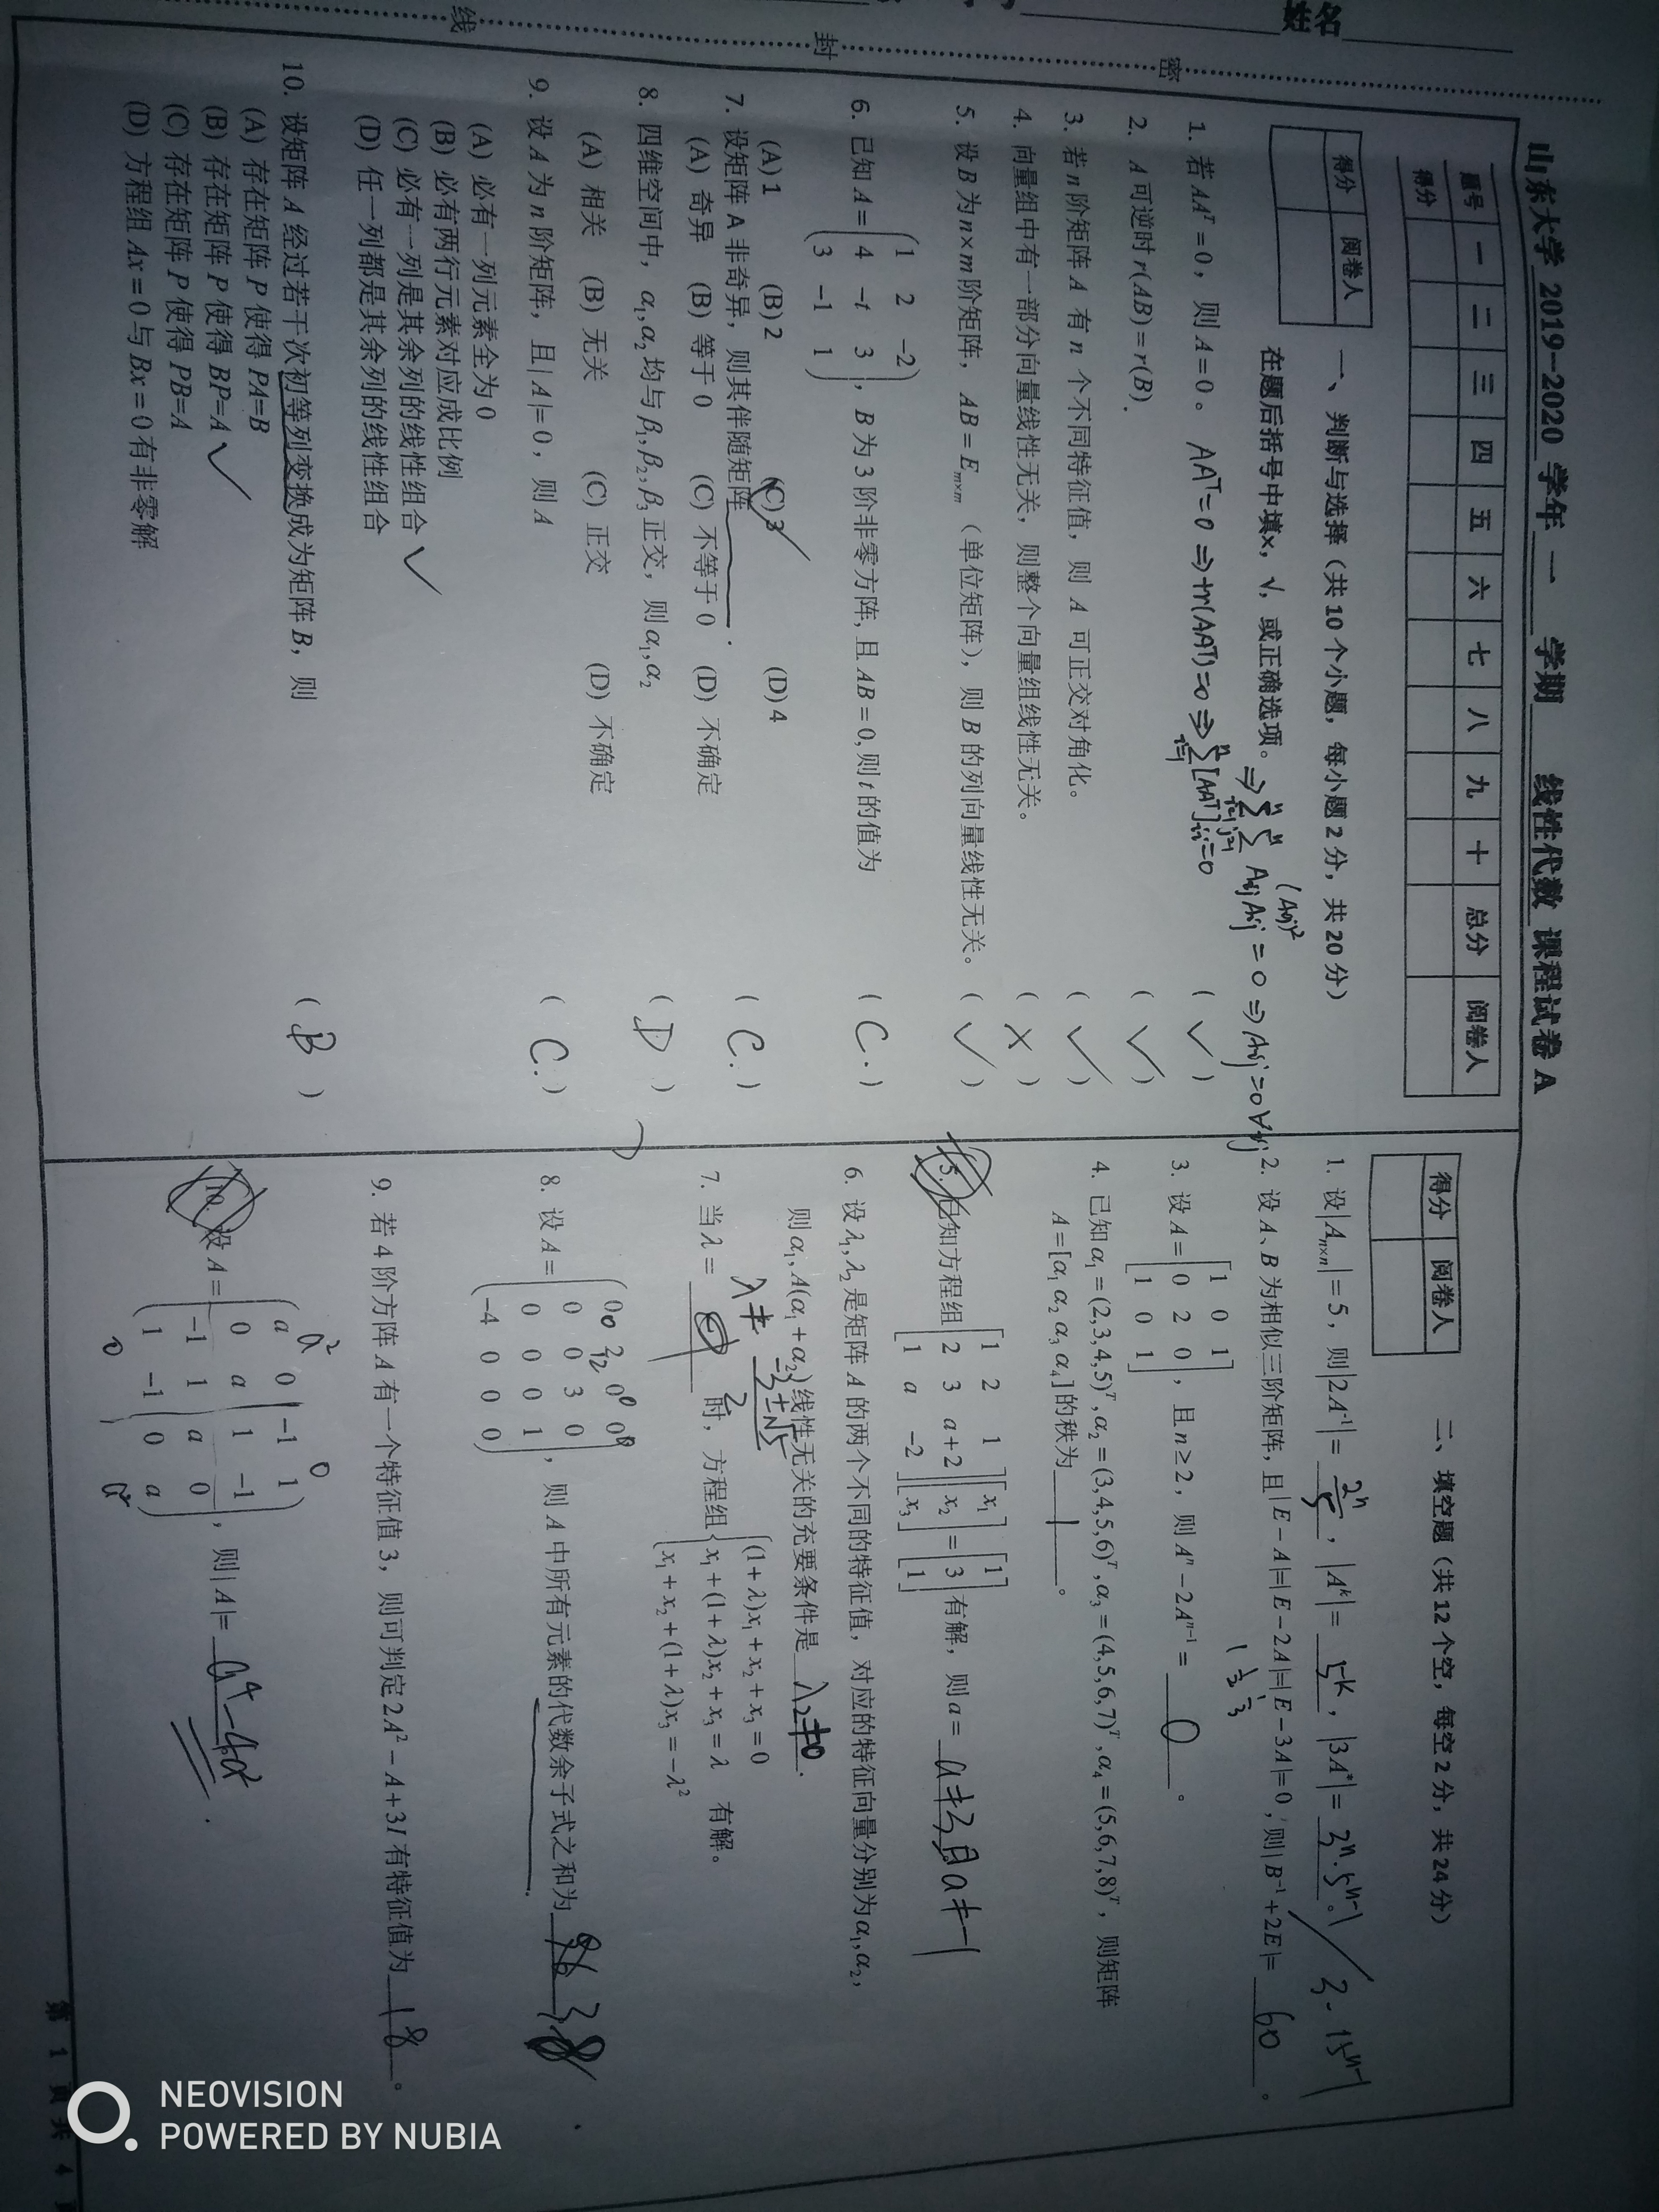 山东大学 2019-2020 学年 一 学期 线性代数 课程试卷 A
题号 一 二 三 四 五 六 七 八 九 十 总分 阅卷人
得分
得分 阅卷人
一、判断与选择（共 10 个小题，每小题 2 分，共 20 分）
在题后括号中填×，√，或正确选项。
1. 若 AAᵀ = 0，则 A = 0。 AAᵀ=0 ⇒ tr(AAᵀ)=0 ⇒ ∑ᵢ₌₁ⁿ [AAᵀ]ᵢᵢ=0 ( ✓ )
2. A 可逆时 r(AB) = r(B). ( ✓ )
3. 若 n 阶矩阵 A 有 n 个不同特征值，则 A 可正交对角化。 ( ✓ )
4. 向量组中有一部分向量线性无关，则整个向量组线性无关。 ( × )
5. 设 B 为 n×m 阶矩阵， AB = Eₘₓₘ （单位矩阵），则 B 的列向量线性无关。 ( ✓ )
6. 已知 A = (1 2 -2; 4 -t 3; 3 -1 1)，B 为 3 阶非零方阵, 且 AB = 0, 则 t 的值为 ( C. )
(A) 1 (B) 2 (C) 3 ✓ (D) 4
7. 设矩阵 A 非奇异，则其伴随矩阵______. ( C. )
(A) 奇异 (B) 等于 0 (C) 不等于 0 (D) 不确定
8. 四维空间中， α₁,α₂ 均与 β₁,β₂,β₃ 正交，则 α₁,α₂ ( D )
(A) 相关 (B) 无关 (C) 正交 (D) 不确定
9. 设 A 为 n 阶矩阵，且 |A|= 0，则 A ( C. )
(A) 必有一列元素全为 0
(B) 必有两行元素对应成比例
(C) 必有一列是其余列的线性组合 ✓
(D) 任一列都是其余列的线性组合
10. 设矩阵 A 经过若干次初等列变换成为矩阵 B，则 ( B )
(A) 存在矩阵 P 使得 PA=B
(B) 存在矩阵 P 使得 BP=A ✓
(C) 存在矩阵 P 使得 PB=A
(D) 方程组 Ax = 0 与 Bx = 0 有非零解
得分 阅卷人
二、填空题（共 12 个空，每空 2 分，共 24 分）
1. 设 |Aₙₓₙ| = 5，则 |2A⁻¹| = 2ⁿ/5 ，|Aᵏ| = 5ᵏ ，|3A*| = 3ⁿ·5ⁿ⁻¹ 。/ 3·15ⁿ⁻¹
2. 设 A、B 为相似三阶矩阵，且 |E − A|=|E − 2A|=|E − 3A|= 0，则 |B⁻¹ + 2E|= 60 。
1 1/2 1/3
3. 设 A = [1 0 1; 0 2 0; 1 0 1]，且 n ≥ 2，则 Aⁿ − 2Aⁿ⁻¹ = 0 。
4. 已知 α₁ = (2,3,4,5)ᵀ, α₂ = (3,4,5,6)ᵀ, α₃ = (4,5,6,7)ᵀ, α₄ = (5,6,7,8)ᵀ，则矩阵
A = [α₁ α₂ α₃ α₄] 的秩为 1 。
5. 已知方程组 [1 2 1; 2 3 a+2; 1 a -2][x₁; x₂; x₃] = [1; 3; 1] 有解，则 a = a≠3且a≠-1
6. 设 λ₁,λ₂ 是矩阵 A 的两个不同的特征值，对应的特征向量分别为 α₁,α₂，
则 α₁, A(α₁ + α₂) 线性无关的充要条件是 λ₂≠0 .
λ≠ (-3±√5)/2
7. 当 λ = ____ 时，方程组 {(1+λ)x₁ + x₂ + x₃ = 0; x₁ + (1+λ)x₂ + x₃ = λ; x₁ + x₂ + (1+λ)x₃ = −λ² 有解。
8. 设 A = (0 2 0 0; 0 0 3 0; 0 0 0 1; -4 0 0 0)，则 A 中所有元素的代数余子式之和为 38
9. 若 4 阶方阵 A 有一个特征值 3，则可判定 2A² − A + 3I 有特征值为 18 。
a² 0
10. 设 A = (a 0 -1 1; 0 a 1 -1; -1 1 a 0; 1 -1 0 a)，则 |A|= a⁴-4a² .
0 a²
第 1 页 共 4
姓名
密
封
线
NEOVISION
POWERED BY NUBIA